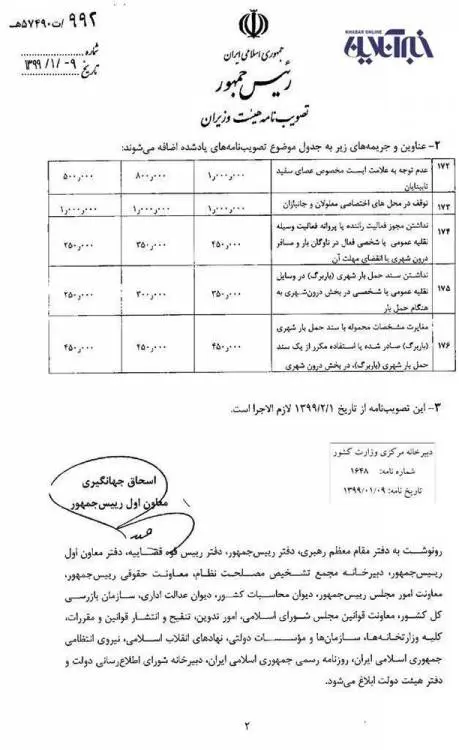 ۹۹۲/ت۵۷۴۹۰هـ
شماره
تاریخ ۱۳۹۹/۱/۰۹
KHABAR ONLINE
خبرآنلاین
جمهوری اسلامی ایران
رئیس جمهور
تصویب نامه هیئت وزیران
۲- عناوین و جریمه‌های زیر به جدول موضوع تصویب‌نامه‌های یادشده اضافه می‌شوند:
۱۷۲ عدم توجه به علامت ایست مخصوص عصای سفید نابینایان ۱٫۰۰۰٫۰۰۰ ۸۰۰٫۰۰۰ ۵۰۰٫۰۰۰
۱۷۳ توقف در محل های اختصاصی معلولان و جانبازان ۱٫۰۰۰٫۰۰۰ ۱٫۰۰۰٫۰۰۰ ۱٫۰۰۰٫۰۰۰
۱۷۴ نداشتن مجوز فعالیت راننده یا پروانه فعالیت وسیله
نقلیه عمومی یا شخصی فعال در ناوگان بار و مسافر
درون شهری یا انقضای مهلت آن ۴۵۰٫۰۰۰ ۳۵۰٫۰۰۰ ۲۵۰٫۰۰۰
۱۷۵ نداشتن سند حمل بار شهری (باربرگ) در وسایل
نقلیه عمومی یا شخصی در بخش درون‌شهری به
هنگام حمل بار ۳۵۰٫۰۰۰ ۳۰۰٫۰۰۰ ۲۵۰٫۰۰۰
۱۷۶ مغایرت مشخصات محموله با سند حمل بار شهری
(باربرگ) صادر شده یا استفاده مکرر از یک سند
حمل بار شهری (باربرگ)، در بخش درون شهری ۴۵۰٫۰۰۰ ۴۵۰٫۰۰۰ ۴۵۰٫۰۰۰
۳- این تصویب‌نامه از تاریخ ۱۳۹۹/۲/۱ لازم الاجرا است.
دبیرخانه مرکزی وزارت کشور
شماره نامه: ۱۶۴۸
تاریخ نامه: ۱۳۹۹/۰۱/۰۹
اسحاق جهانگیری
معاون اول رییس‌جمهور
رونوشت به دفتر مقام معظم رهبری، دفتر رییس‌جمهور، دفتر رییس قوه قضاییه، دفتر معاون اول
رییس‌جمهور، دبیرخانه مجمع تشخیص مصلحت نظام، معاونت حقوقی رییس‌جمهور،
معاونت امور مجلس رییس‌جمهور، دیوان محاسبات کشور، دیوان عدالت اداری، سازمان بازرسی
کل کشور، معاونت قوانین مجلس شورای اسلامی، امور تدوین، تنقیح و انتشار قوانین و مقررات،
کلیه وزارتخانه‌ها، سازمان‌ها و مؤسسات دولتی، نهادهای انقلاب اسلامی، نیروی انتظامی
جمهوری اسلامی ایران، روزنامه رسمی جمهوری اسلامی ایران، دبیرخانه شورای اطلاع‌رسانی دولت و
دفتر هیئت دولت ابلاغ می‌شود.
۲